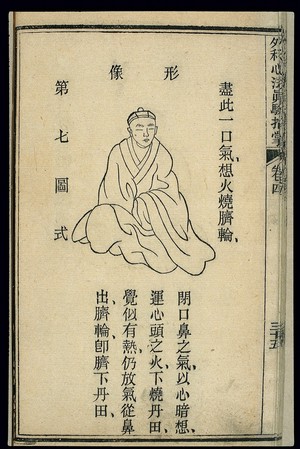 外科心法真驗指掌 卷四 三十五
形像
第七圖式
盡此一口氣、想火燒臍輪、
閉口鼻之氣、以心暗想、
運心頭之火、下燒丹田、
覺似有熱、仍放氣從鼻
出、臍輪、卽臍下丹田、